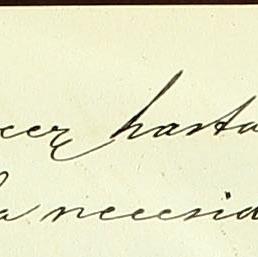 cer hasta
la necesid